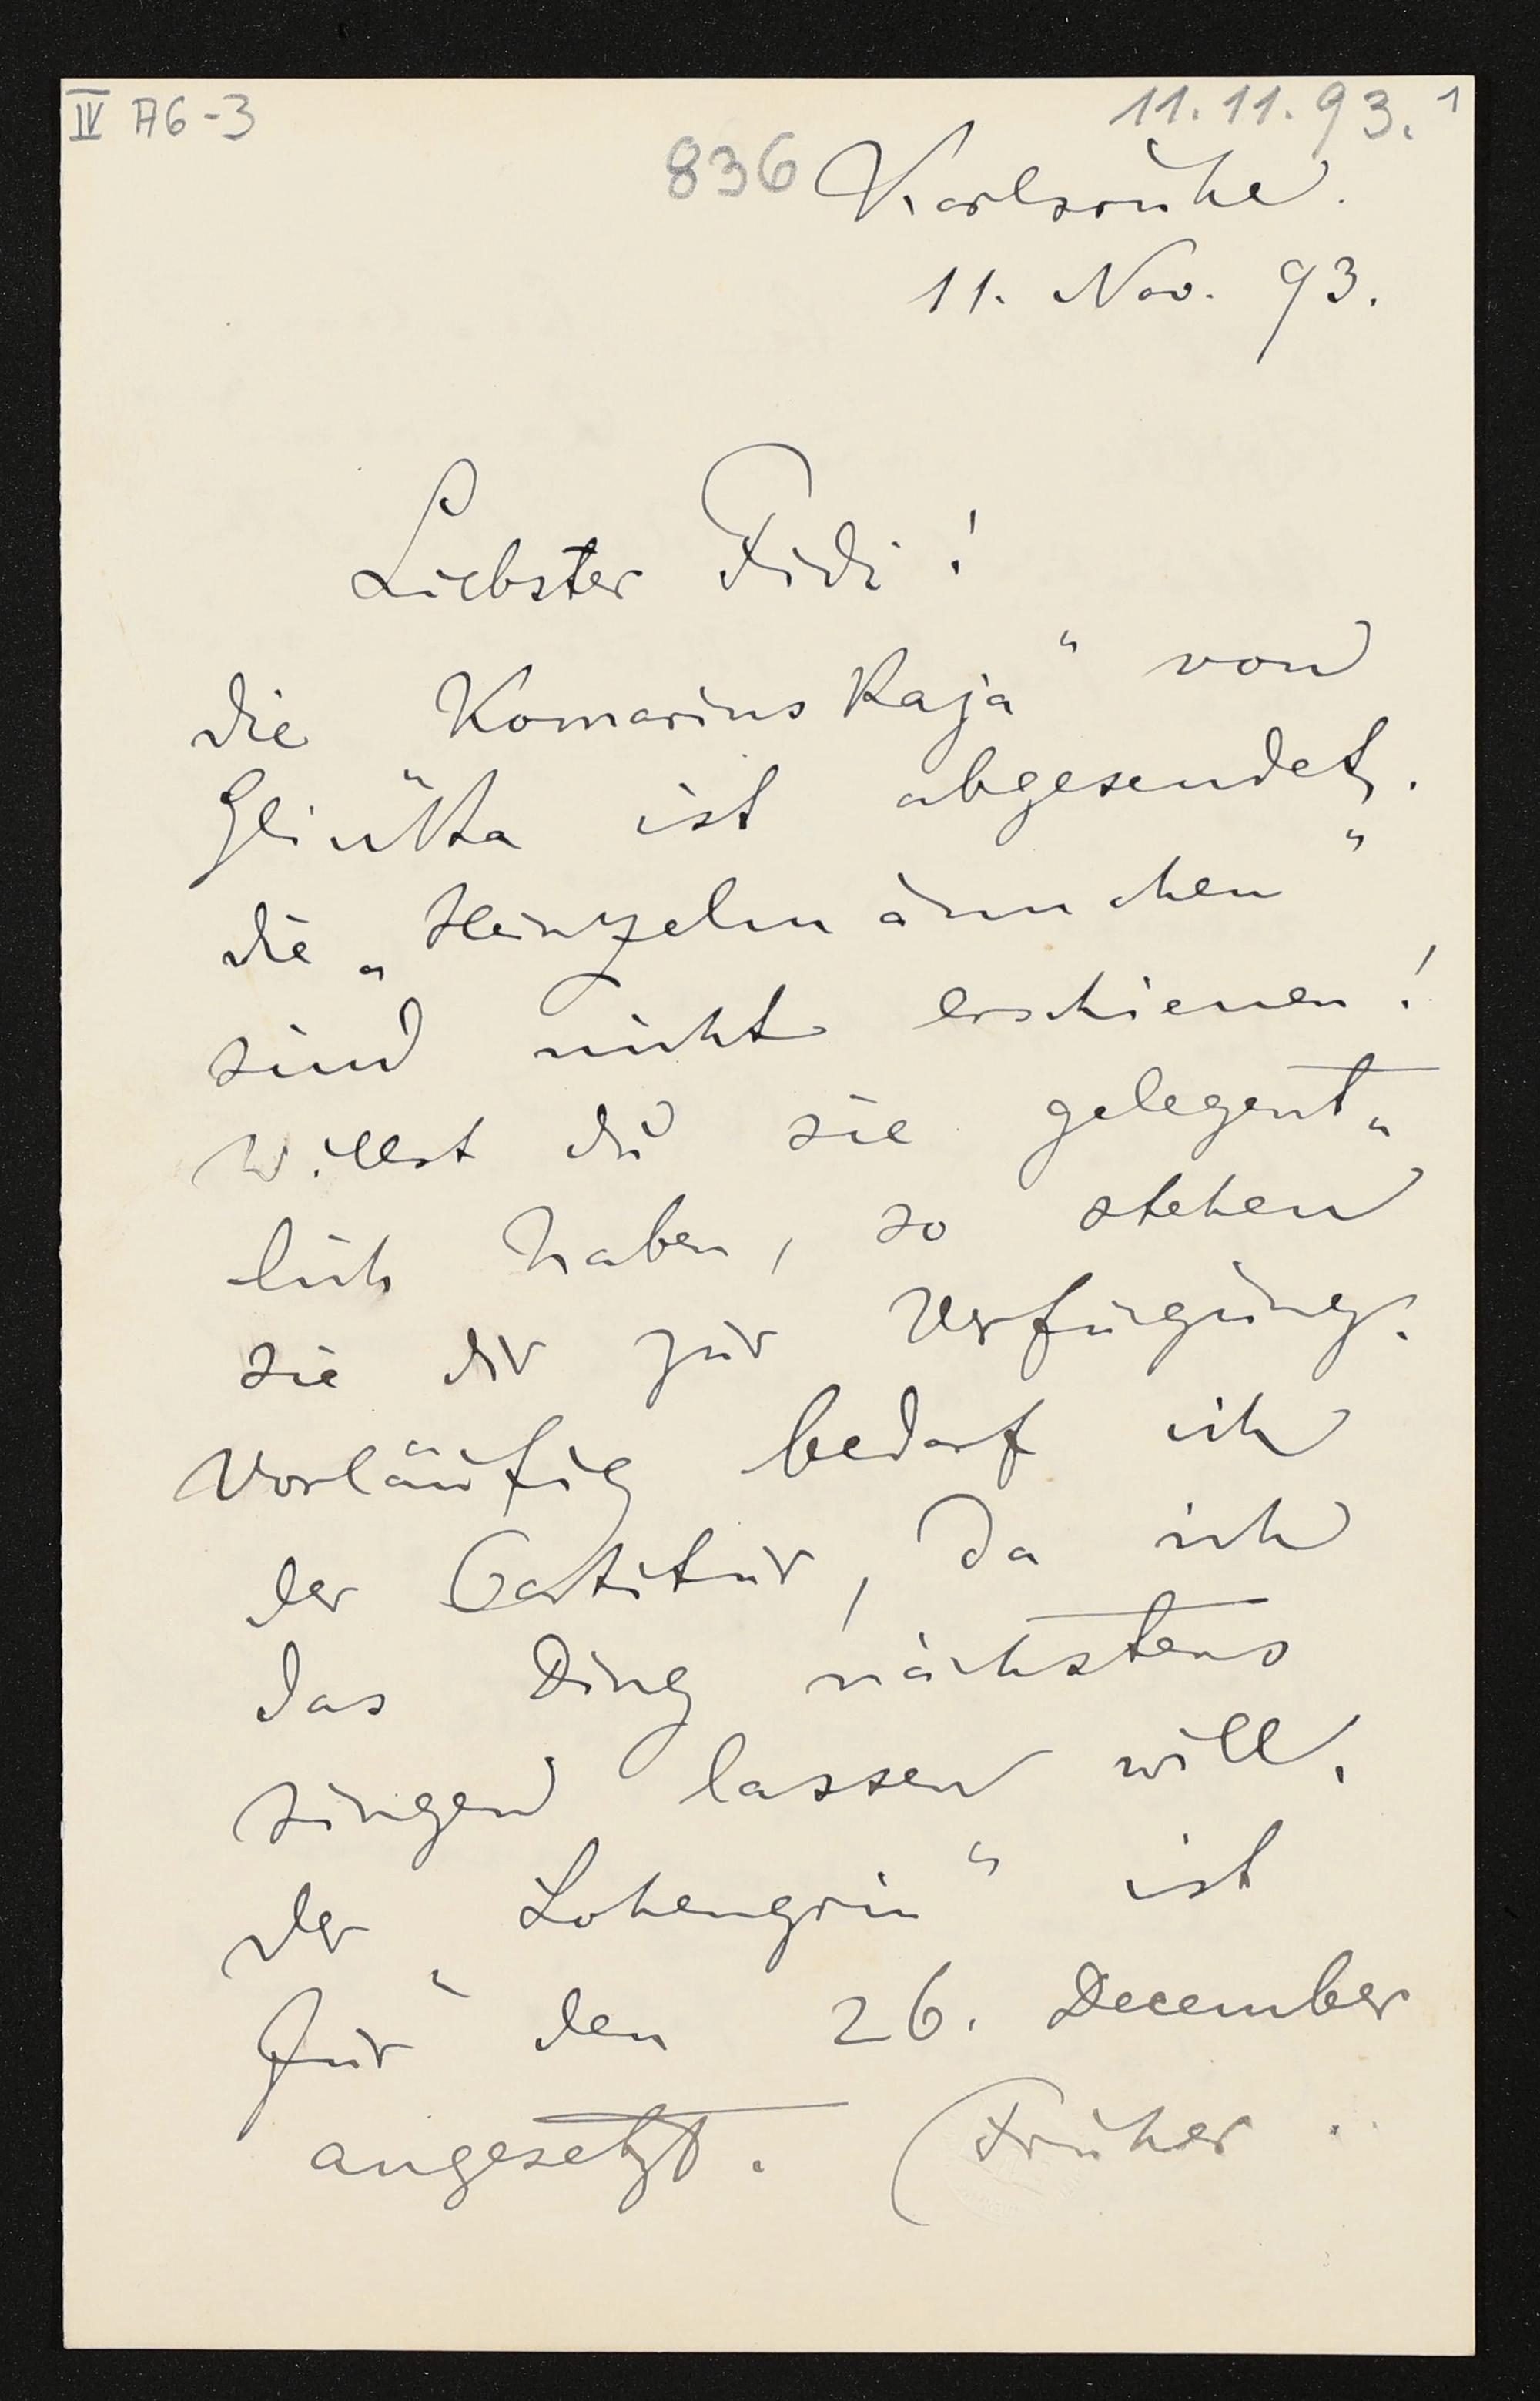 IV A6-3
11.11.93. 1
836 Karlsruhe.
11. Nov. 93.
Liebster Fidi!
die Komarinskaja" von
Glinka ist abgesendet.
die „Heinzelmännchen"
sind nicht erschienen!
willst du sie gelegent„
lich haben, so stehen
sie dir zur Verfügung.
Vorläufig bedarf ich
der Partitur, da ich
das Ding nächstens
singen lassen will.
der „Lohengrin" ist
für den 26. December
angesetzt. (Früher